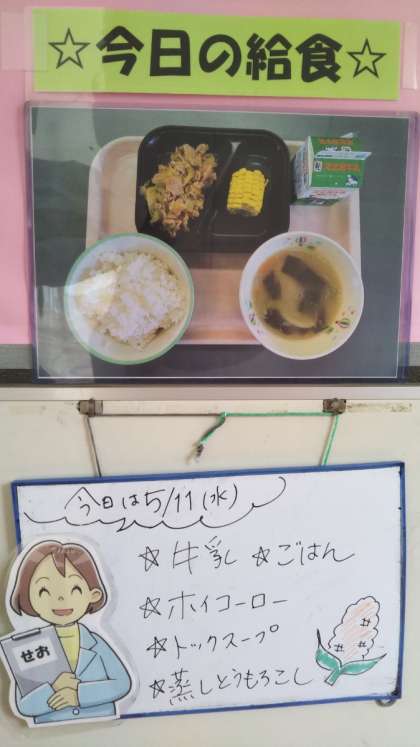 ☆今日の給食☆
今日は5/11(水)
☆牛乳 ☆ごはん
☆ホイコーロー
☆トックスープ
☆蒸しとうもろこし
せお